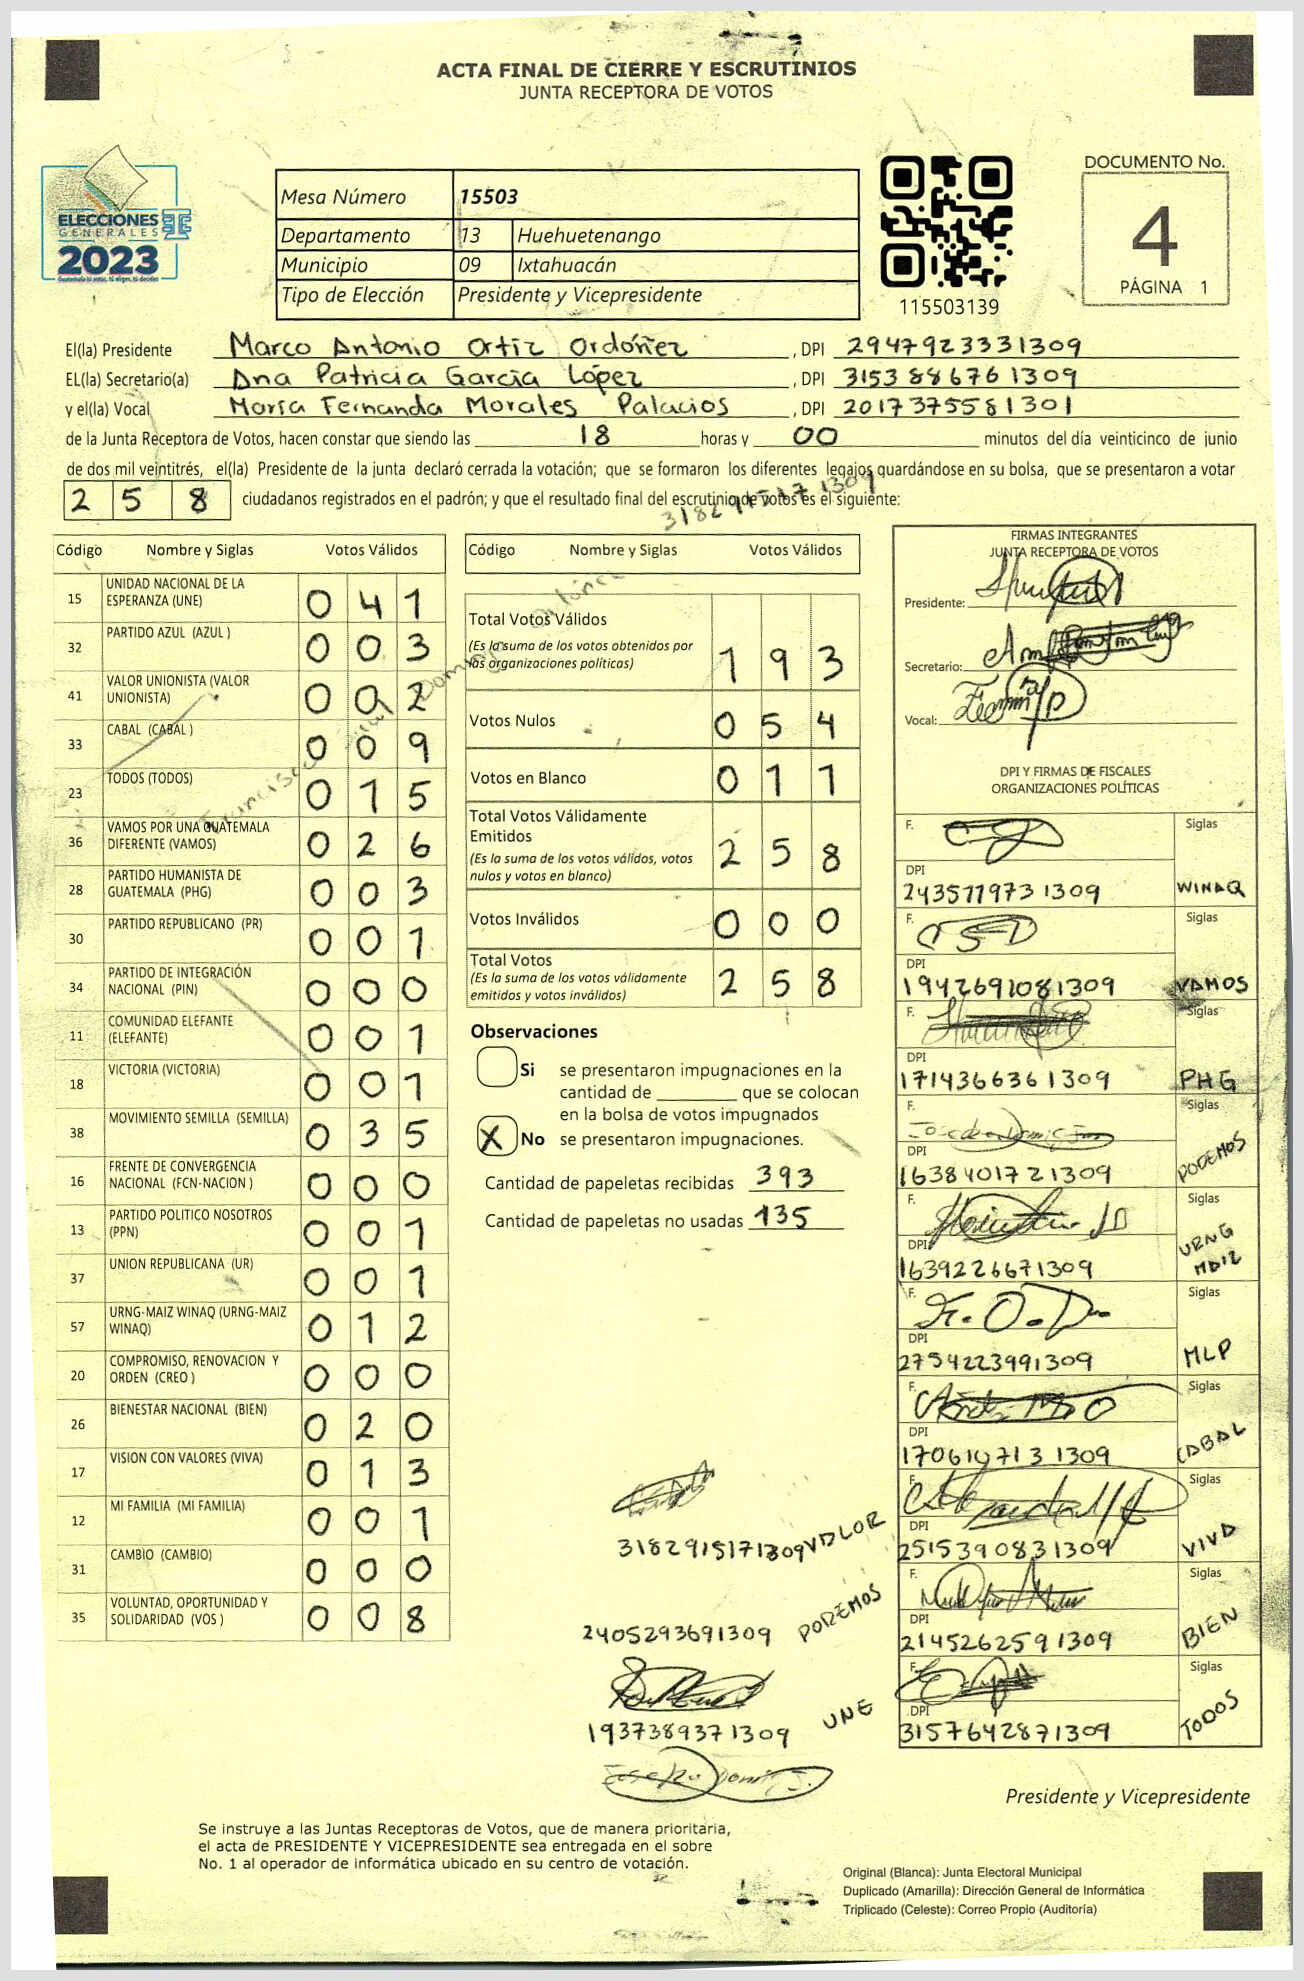 ACTA FINAL DE CIERRE Y ESCRUTINIOS
JUNTA RECEPTORA DE VOTOS
ELECCIONES
GENERALES
2023
TSE
Mesa Número 15503
Departamento 13 Huehuetenango
Municipio 09 Ixtahuacán
Tipo de Elección Presidente y Vicepresidente
115503139
DOCUMENTO No.
4
PÁGINA 1
El(la) Presidente Marco Antonio Ortiz Ordóñez, DPI 2947923331309
EL(la) Secretario(a) Ana Patricia García López, DPI 3153886761309
y el(la) Vocal María Fernanda Morales Palacios, DPI 2017375581301
de la Junta Receptora de Votos, hacen constar que siendo las 18 horas y 00 minutos del día veinticinco de junio
de dos mil veintitrés, el(la) Presidente de la junta declaró cerrada la votación; que se formaron los diferentes legajos guardándose en su bolsa, que se presentaron a votar
258 ciudadanos registrados en el padrón; y que el resultado final del escrutinio de votos es el siguiente:
Código Nombre y Siglas Votos Válidos
15 UNIDAD NACIONAL DE LA ESPERANZA (UNE) 041
32 PARTIDO AZUL (AZUL ) 003
41 VALOR UNIONISTA (VALOR UNIONISTA) 002
33 CABAL (CABAL ) 009
23 TODOS (TODOS) 015
36 VAMOS POR UNA GUATEMALA DIFERENTE (VAMOS) 026
28 PARTIDO HUMANISTA DE GUATEMALA (PHG) 003
30 PARTIDO REPUBLICANO (PR) 001
34 PARTIDO DE INTEGRACIÓN NACIONAL (PIN) 000
11 COMUNIDAD ELEFANTE (ELEFANTE) 001
18 VICTORIA (VICTORIA) 001
38 MOVIMIENTO SEMILLA (SEMILLA) 035
16 FRENTE DE CONVERGENCIA NACIONAL (FCN-NACION ) 000
13 PARTIDO POLITICO NOSOTROS (PPN) 001
37 UNION REPUBLICANA (UR) 001
57 URNG-MAIZ WINAQ (URNG-MAIZ WINAQ) 012
20 COMPROMISO, RENOVACION Y ORDEN (CREO ) 000
26 BIENESTAR NACIONAL (BIEN) 020
17 VISION CON VALORES (VIVA) 013
12 MI FAMILIA (MI FAMILIA) 001
31 CAMBIO (CAMBIO) 000
35 VOLUNTAD, OPORTUNIDAD Y SOLIDARIDAD (VOS ) 008
Código Nombre y Siglas Votos Válidos
Total Votos Válidos
(Es la suma de los votos obtenidos por
las organizaciones políticas) 193
Votos Nulos 054
Votos en Blanco 011
Total Votos Válidamente
Emitidos
(Es la suma de los votos válidos, votos
nulos y votos en blanco) 258
Votos Inválidos 000
Total Votos
(Es la suma de los votos válidamente
emitidos y votos inválidos) 258
Observaciones
Si se presentaron impugnaciones en la
cantidad de ________ que se colocan
en la bolsa de votos impugnados
X No se presentaron impugnaciones.
Cantidad de papeletas recibidas 393
Cantidad de papeletas no usadas 135
3182915171309 VALOR
2405293691309 PODEMOS
1937389371309 UNE
FIRMAS INTEGRANTES
JUNTA RECEPTORA DE VOTOS
Presidente:
Secretario:
Vocal:
DPI Y FIRMAS DE FISCALES
ORGANIZACIONES POLÍTICAS
F. Siglas
DPI
2435119731309 WINAQ
F. Siglas
DPI
1942691081309 VAMOS
F. Siglas
DPI
1714366361309 PHG
F. Siglas
DPI
1638401721309 PODEMOS
F. Siglas
DPI
1639226671309 URNG MAIZ
F. Siglas
DPI
2754223991309 MLP
F. Siglas
DPI
1706107131309 CABAL
F. Siglas
DPI
2515390831309 VIVA
F. Siglas
DPI
2145262591309 BIEN
F. Siglas
DPI
3157642871309 TODOS
Presidente y Vicepresidente
Se instruye a las Juntas Receptoras de Votos, que de manera prioritaria,
el acta de PRESIDENTE Y VICEPRESIDENTE sea entregada en el sobre
No. 1 al operador de informática ubicado en su centro de votación.
Original (Blanca): Junta Electoral Municipal
Duplicado (Amarilla): Dirección General de Informática
Triplicado (Celeste): Correo Propio (Auditoría)